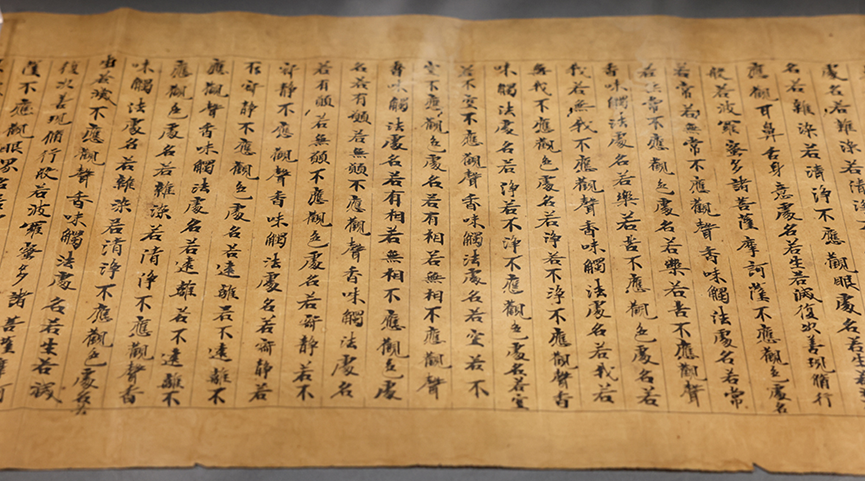 處名若雜染若清淨
名若雜染若清淨不應觀眼處名若
應觀耳鼻舌身意處名若生若滅復次善現脩行
般若波羅蜜多諸菩薩摩訶薩不應觀色處名
若常若無常不應觀聲香味觸法處名若常
若無常不應觀色處名若樂若苦不應觀聲
香味觸法處名若樂若苦不應觀色處名若
我若無我不應觀聲香味觸法處名若我若
無我不應觀色處名若淨若不淨不應觀聲香
味觸法處名若淨若不淨不應觀色處名若空
若不空不應觀聲香味觸法處名若空若不
空不應觀色處名若有相若無相不應觀聲
香味觸法處名若有相若無相不應觀色處
名若有願若無願不應觀聲香味觸法處名
若有願若無願不應觀色處名若寂靜若不
寂靜不應觀聲香味觸法處名若寂靜若
不寂靜不應觀色處名若遠離若不遠離不
應觀聲香味觸法處名若遠離若不遠離不
應觀色處名若雜染若清淨不應觀聲香
味觸法處名若雜染若清淨不應觀色處名若
生若滅不應觀聲香味觸法處名若生若滅
復次善現脩行般若波羅蜜多諸菩薩摩訶
薩不應觀眼界名若